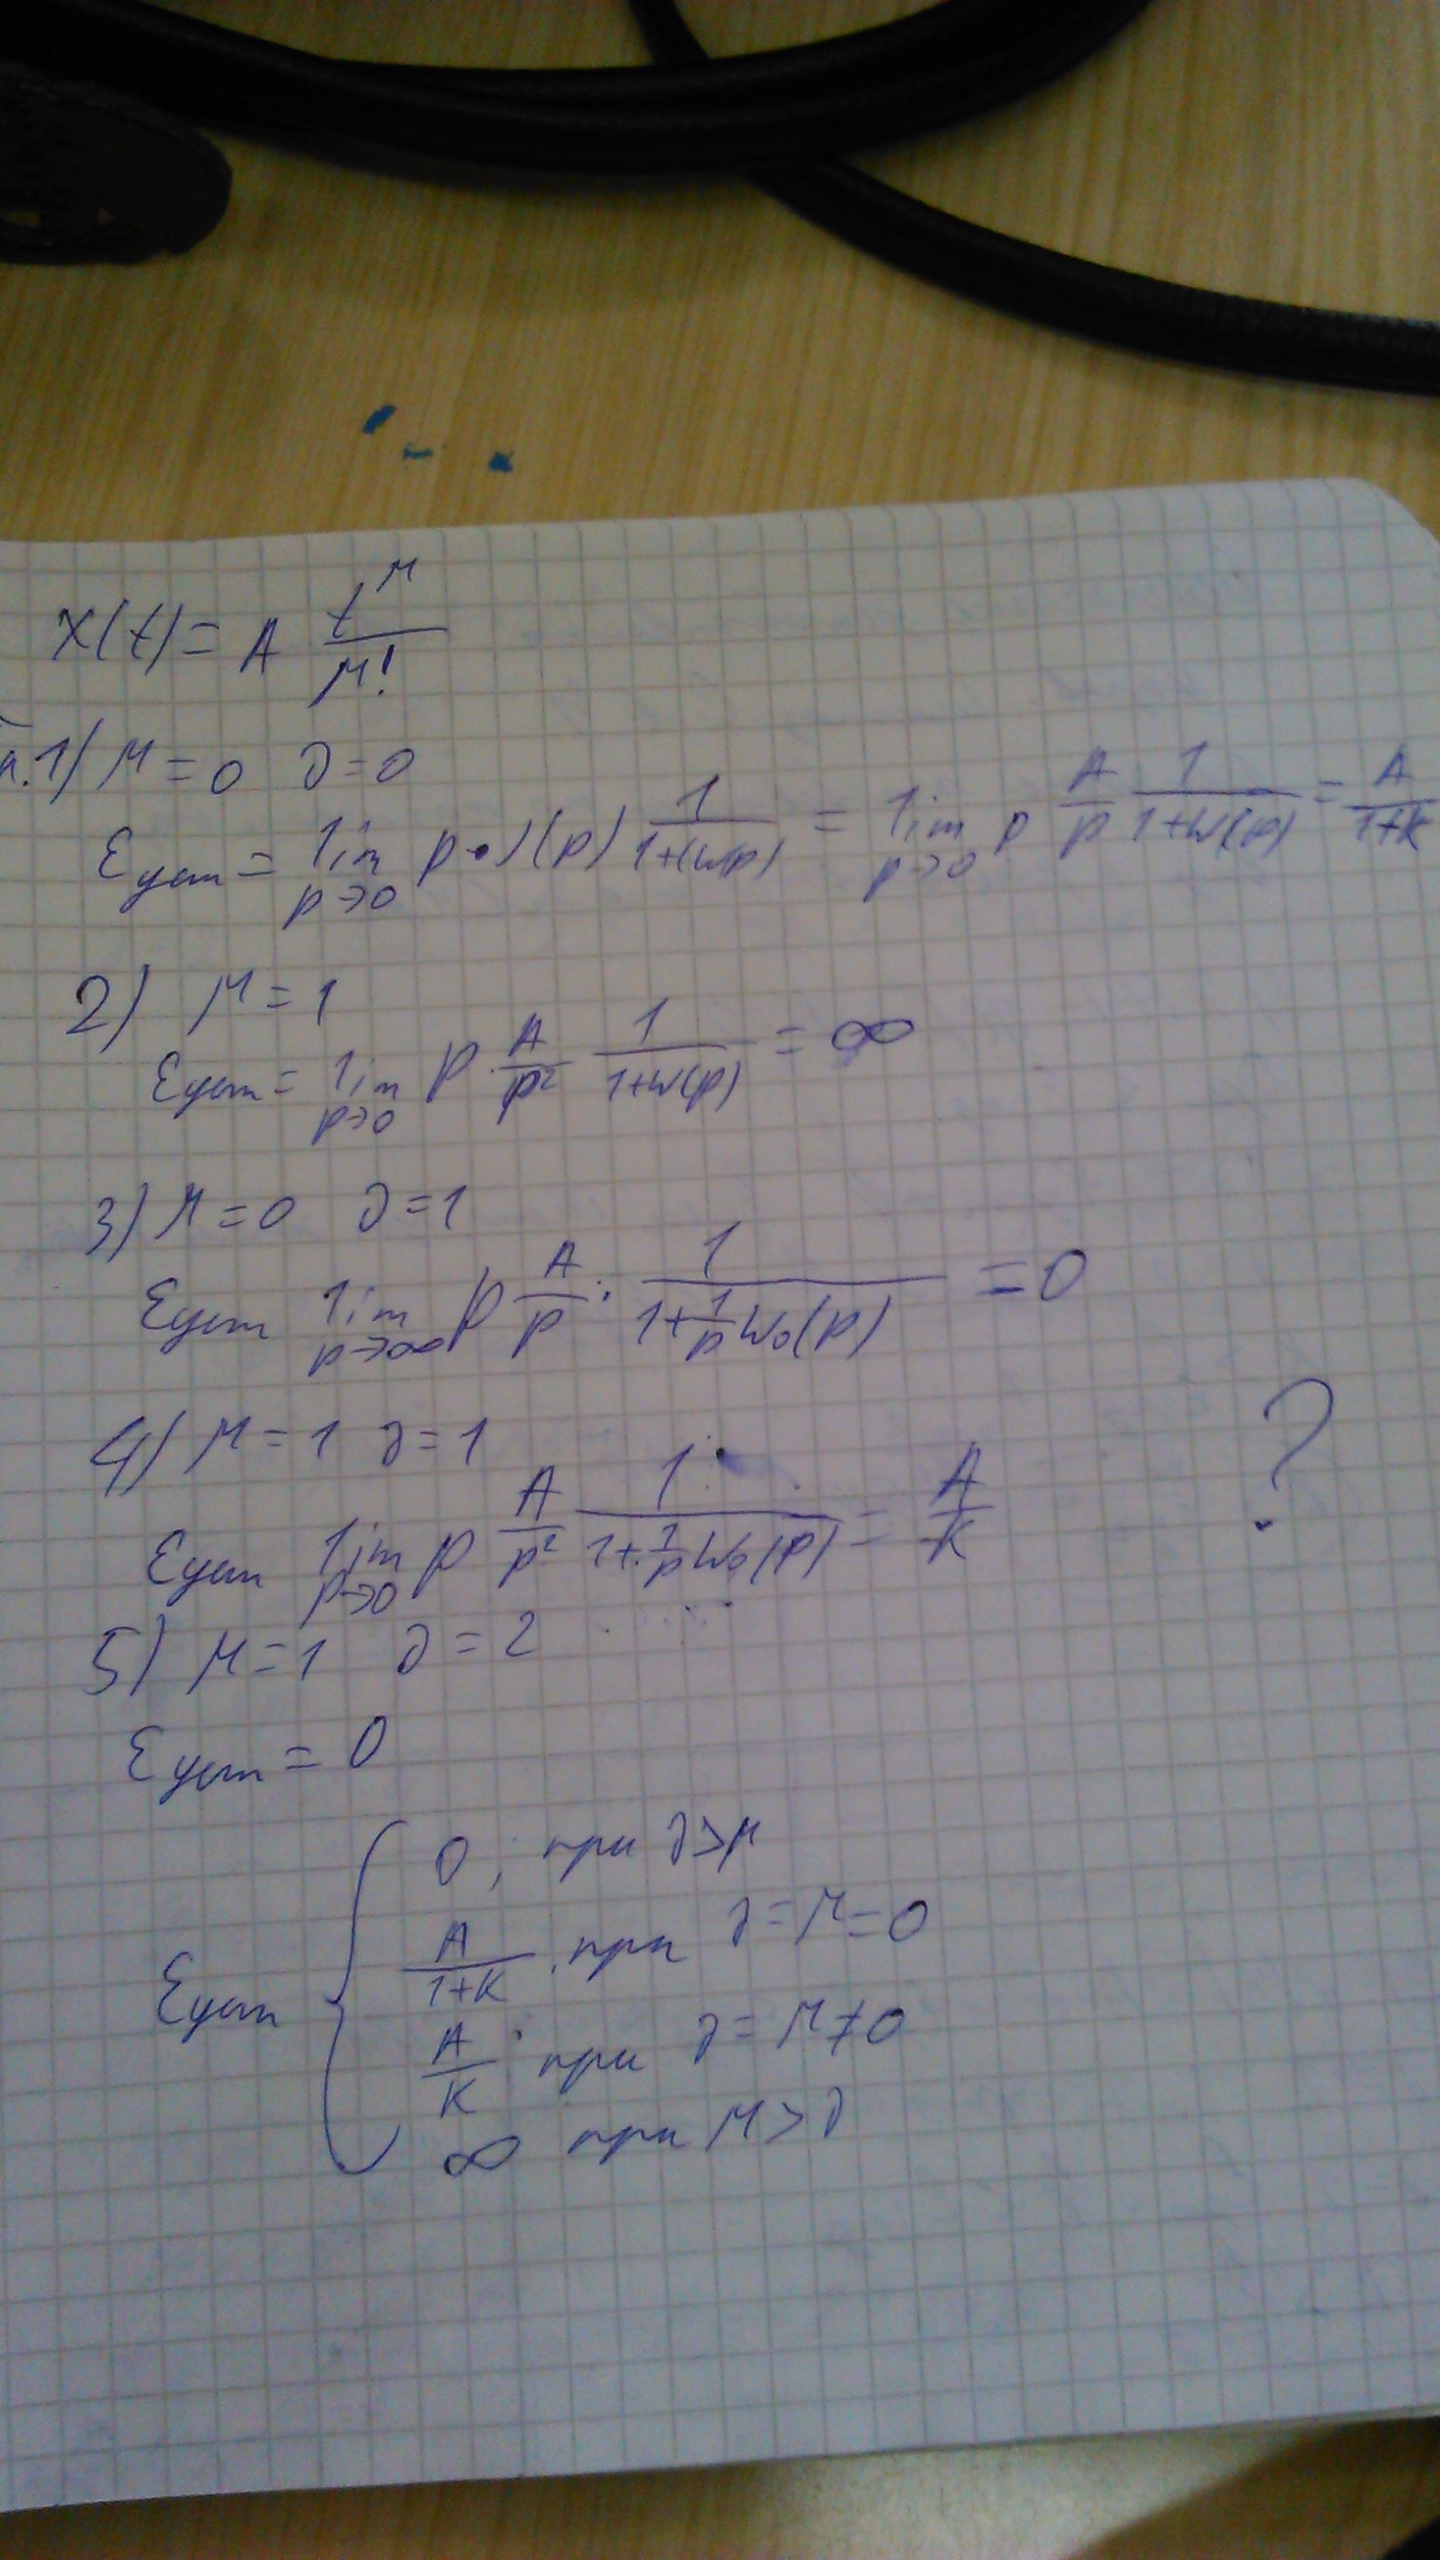 X(t) = A t^μ / μ!
1) μ = 0 ∂ = 0
Eуст = lim p→0 p · (p) 1/(1+(W(p)) = lim p→0 p A/p 1/(1+W(p)) = A/(1+K)
2) μ = 1
Eуст = lim p→0 p · A/p² 1/(1+W(p)) = ∞
3) μ = 0 ∂ = 1
Eуст lim p→∞ p A/p · 1/(1+1/p W₀(p)) = 0
4) μ = 1 ∂ = 1
?
Eуст lim p→0 p A/p² 1/(1+1/p W₀(p)) = A/K
5) μ = 1 ∂ = 2
Eуст = 0
0, при ∂ > μ
A/(1+K), при ∂ = μ = 0
Eуст {
A/K при ∂ = μ ≠ 0
∞ при μ > ∂